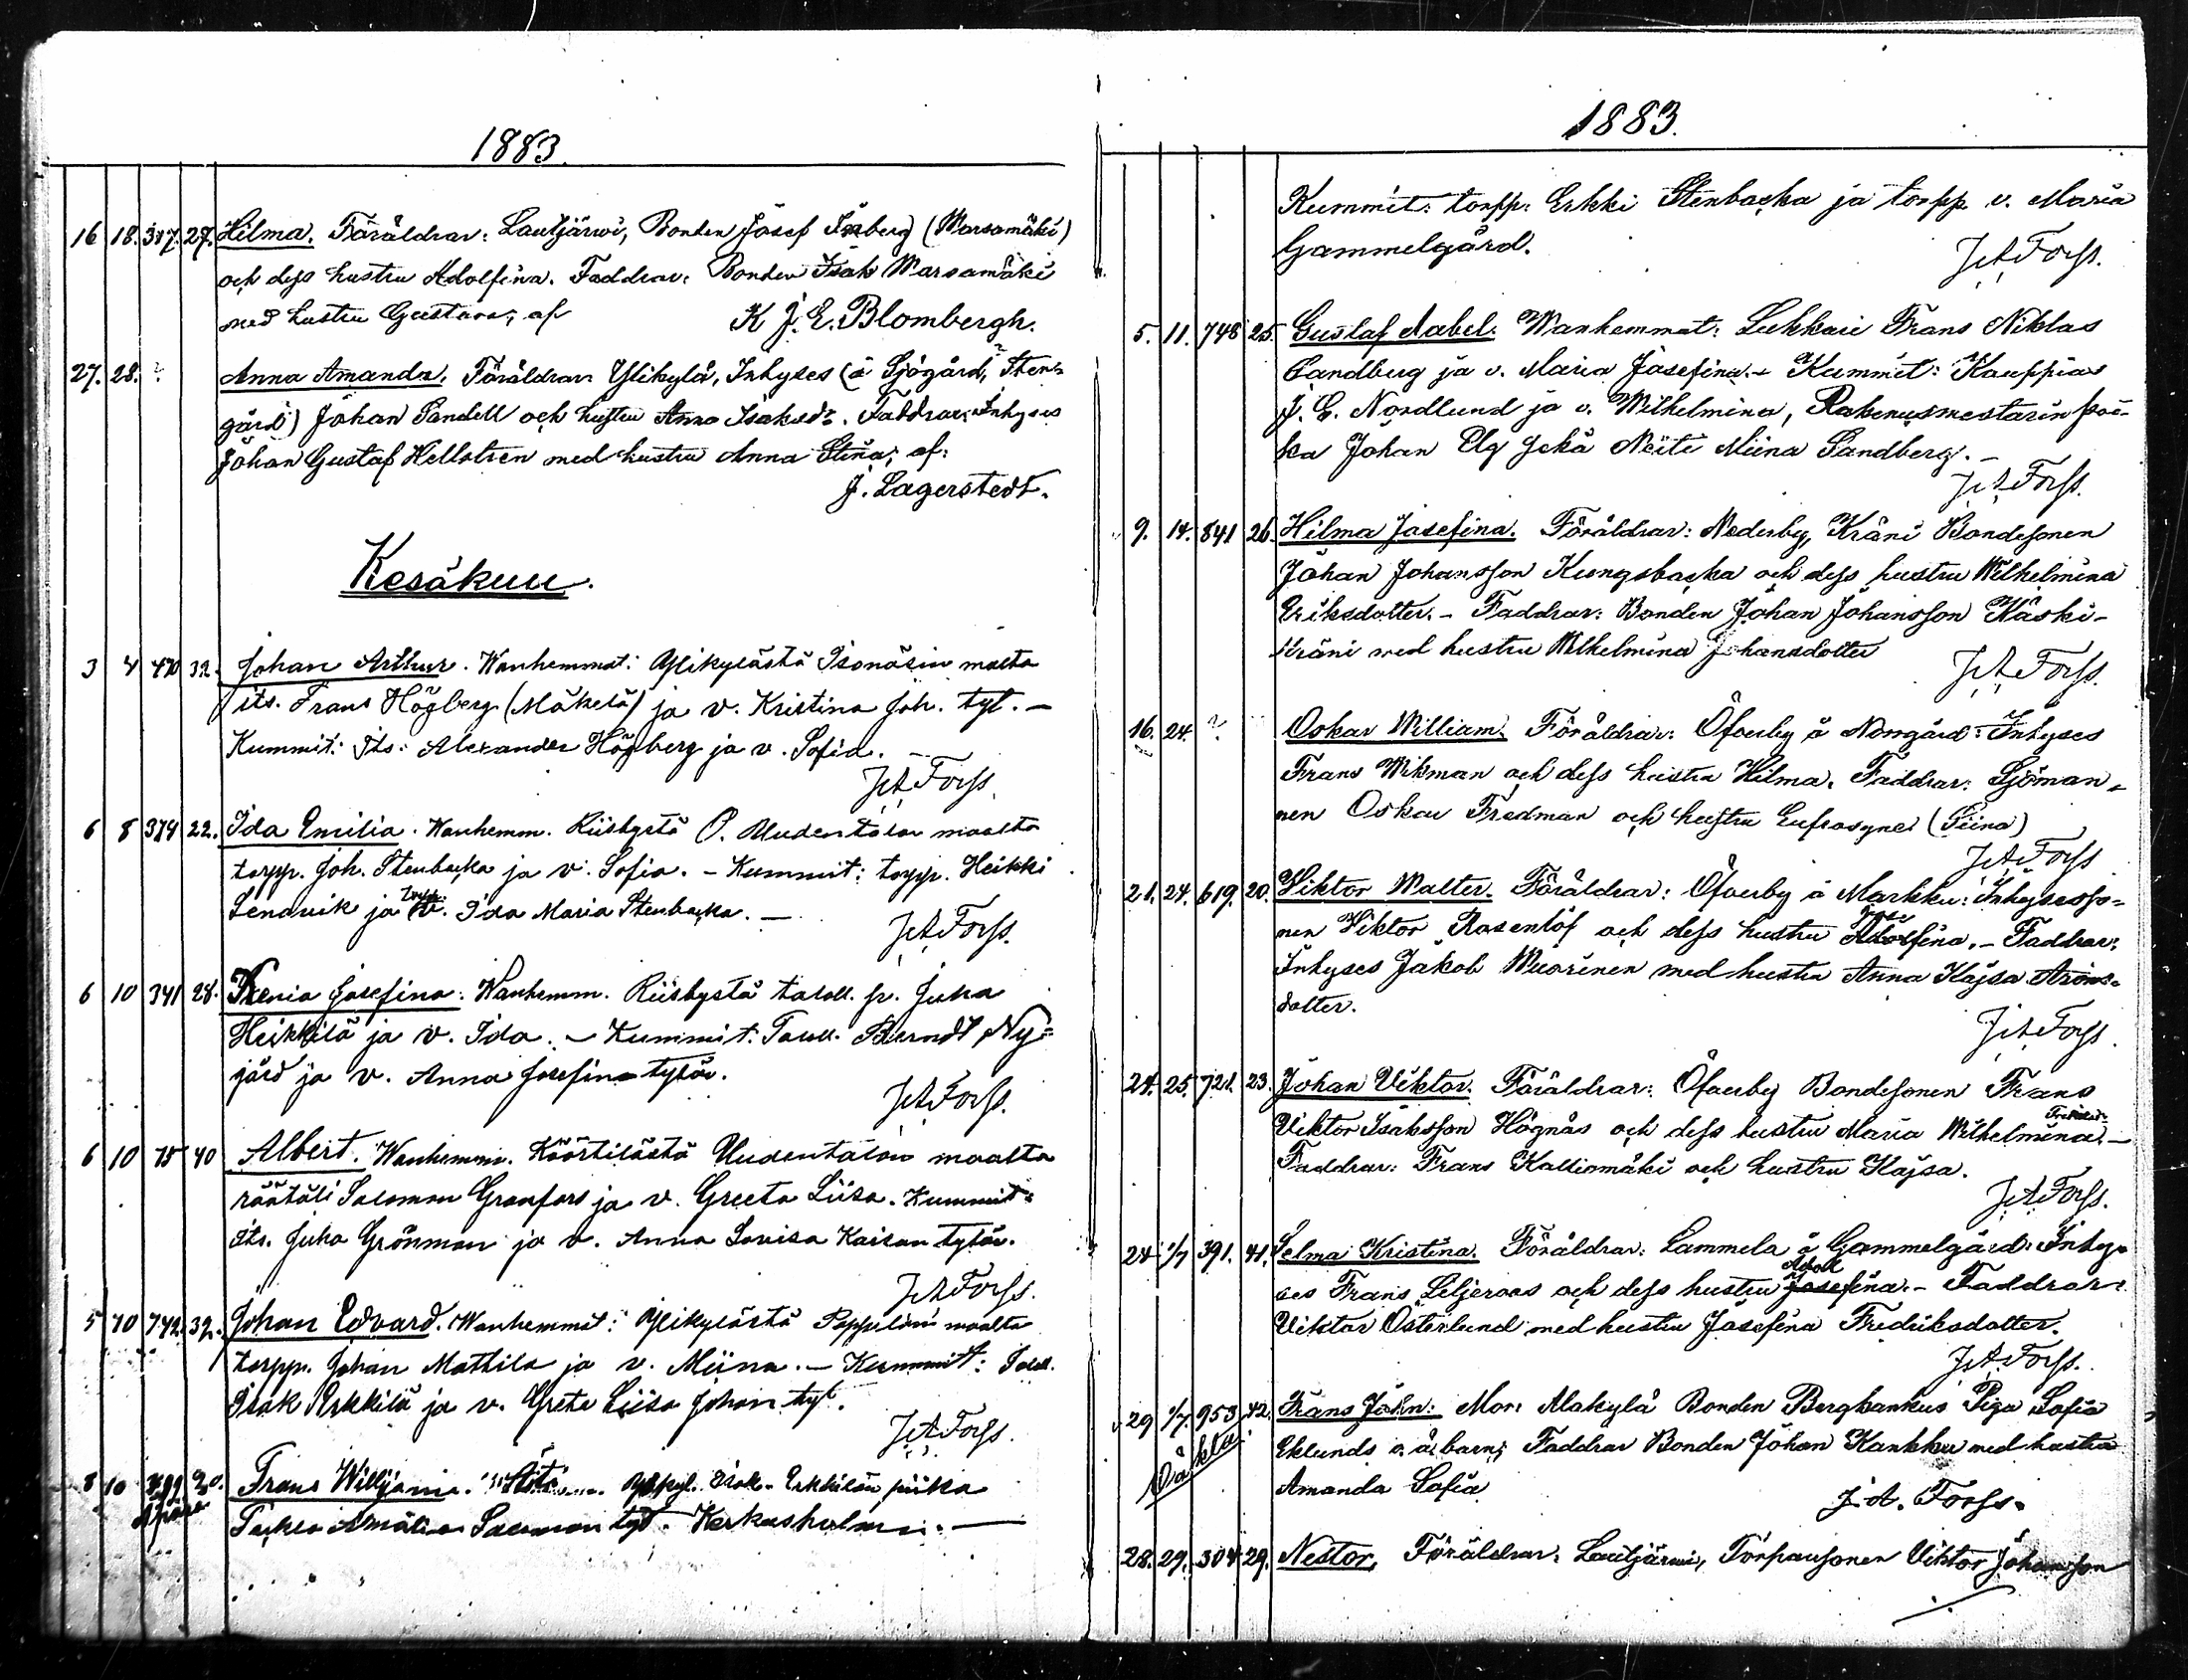 1883.
16 18. 317. 27. Hilma. Föräldrar: Lautjärwi, Bonden Josef Isberg (Warsamäki)
och dess hustru Adolfina. Faddrar: Bonden Isak Warsamäki
med hustru Gustava; af K J. E. Blombergh.
27. 28. ? Anna Amanda. Föräldrar: Ylikylä, Inhyses (å Sjögård, Sten-
gård) Johan Sandell och hustru Anna Isaksdr. Faddrar: Inhyses
Johan Gustaf Hellstren med hustru Anna Stina; af:
J. Lagerstedt.
Kesäkuu.
3 4 470 32. Johan Arthur. Wanhemmat: Ylikylästä Isonäsin maalta
its. Frans Högberg (Mäkelä) ja v. Kristina Joh. tyt. —
Kummit: Its. Alexander Högberg ja v. Sofia. —
J.A. Forss.
6 8 374 22. Ida Emilia. Wanhemm. Riisbystä P. Uudentalon maalta
torpp. Joh. Stenbacka ja v. Sofia. – Kummit: torpp. Heikki
Lenqvik ja v. Ida Maria Stenbacka. —
J.A. Forss.
6 10 341 28. Xenia Josefina. Wanhemm. Riisbystä taloll. p. Juha
Heikkilä ja v. Ida. – Kummit: Taloll. Berndt Ny=
gård ja v. Anna Josefina tytär.
J.A. Forss.
6 10 75 40 Albert. Wanhemm. Köörtilästä Uudentalon maalta
räätäli Salomon Granfors ja v. Greeta Liisa. Kummit:
its. Juha Grönman ja v. Anna Lovisa Kaisan tytär.
J.A. Forss.
5 10 742. 32. Johan Edvard. Wanhemmat: Ylikylästä Pappilan maalta
torpp. Johan Mattila ja v. Miina. – Kummit: Taloll.
Isak Erkkilä ja v. Greta Liisa Johan tyt.
J.A. Forss.
8 10 20. Frans Williami. Äiti Erkkilän piika
Amalia Salomon tyt. Kerkusholm. —
1883.
Kummit: torpp. Erkki Stenbacka ja torpp. v. Maria
Gammelgård.
J.A. Forss.
5. 11. 748 25. Gustaf Aabel. Wanhemmat: Lukkari Frans Niklas
Sandberg ja v. Maria Josefina. – Kummit: Kauppias
J. E. Nordlund ja v. Wilhelmina, Rakenusmestarin poi-
ka Johan Elg sekä Neiti Miina Sandberg. –
J.A. Forss.
9. 14. 841 26. Hilma Josefina. Föräldrar: Nederby, Kräni Bondesonen
Johan Johansson Kungsbacka och dess hustru Wilhelmina
Eriksdotter. – Faddrar: Bonden Johan Johansson Käski-
Kräni med hustru Wilhelmina Johansdotter
J.A. Forss.
16. 24. ? Oskar William. Föräldrar: Öfverby å Norrgård: Inhyses
Frans Wikman och dess hustru Hilma. Faddrar: Sjöman-
nen Oskar Fredman och hustru Eufrosyne (Siina)
J.A. Forss
21. 24. 619. 20. Viktor Walter. Föräldrar: Öfverby å Markku: Inhysesso-
nen Viktor Rosenlöf och dess hustru fina. – Faddrar:
Inhyses Jakob Wuorinen med hustru Anna Kajsa
dotter.
J.A. Forss.
24. 25. 721. 23. Johan Viktor. Föräldrar: Öfverby Bondesonen Frans
Viktor Isaksson Högnäs och dess hustru Maria Wilhelmina. —
Faddrar: Frans Kalliomäki och hustru Kajsa.
J.A. Forss.
24 1/7 391. 41. Selma Kristina. Föräldrar: Lammela å Gammelgård: Inhy-
ses Frans Liljeroos och dess hustru Adolfina. – Faddrar:
Viktor Österlund med hustru Josefina Fredriksdotter.
J.A. Forss.
29 1/7. 953 42. Frans John: Mor: Alakylä Bonden Bergbankus Piga Sofia
Eklunds o. ä. barn; Faddrar Bonden Johan Kankku med hustru
Amanda Sofia
J. A. Forss.
28. 29. 304 29. Nestor, Föräldrar: Lautjärwi, Torparsonen Viktor Johansson